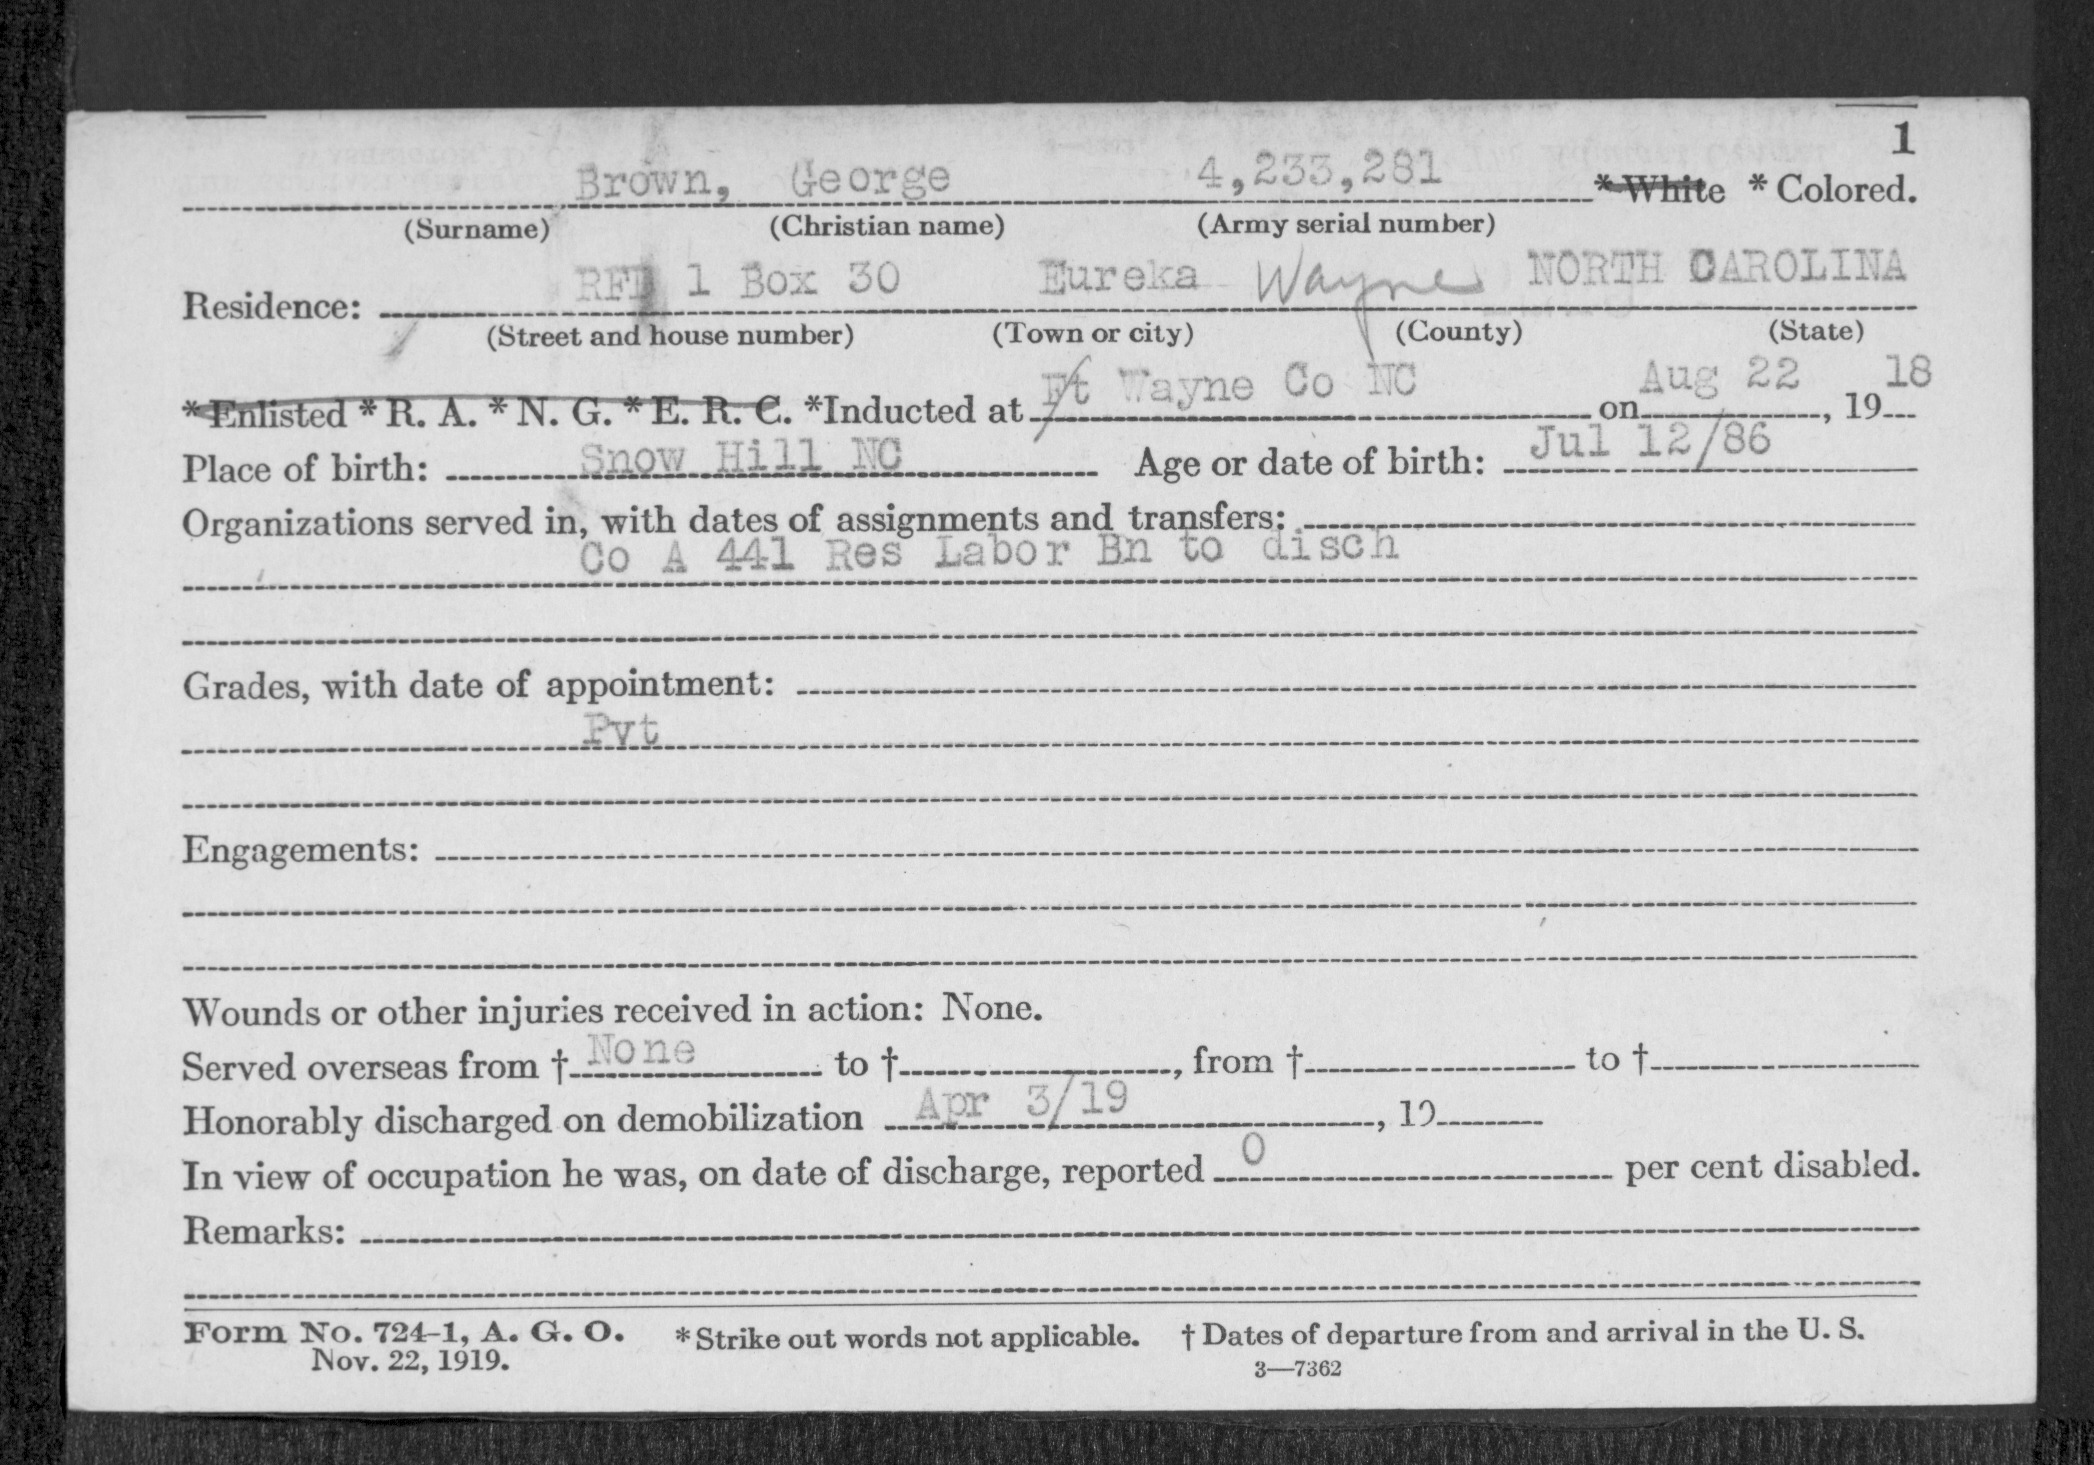 1
Brown, George 4,233,281 *White *Colored.
(Surname) (Christian name) (Army serial number)
Residence: RFD 1 Box 30 Eureka Wayne NORTH CAROLINA
(Street and house number) (Town or city) (County) (State)
*Enlisted *R. A. *N. G. *E. R. C. *Inducted at Ft Wayne Co NC on Aug 22, 1918
Place of birth: Snow Hill NC Age or date of birth: Jul 12/86
Organizations served in, with dates of assignments and transfers:
Co A 441 Res Labor Bn to disch
Grades, with date of appointment:
Pvt
Engagements:
Wounds or other injuries received in action: None.
Served overseas from † None to †, from † to †
Honorably discharged on demobilization Apr 3/19, 19
In view of occupation he was, on date of discharge, reported 0 per cent disabled.
Remarks:
Form No. 724-1, A. G. O. *Strike out words not applicable. † Dates of departure from and arrival in the U. S.
Nov. 22, 1919. 3—7362